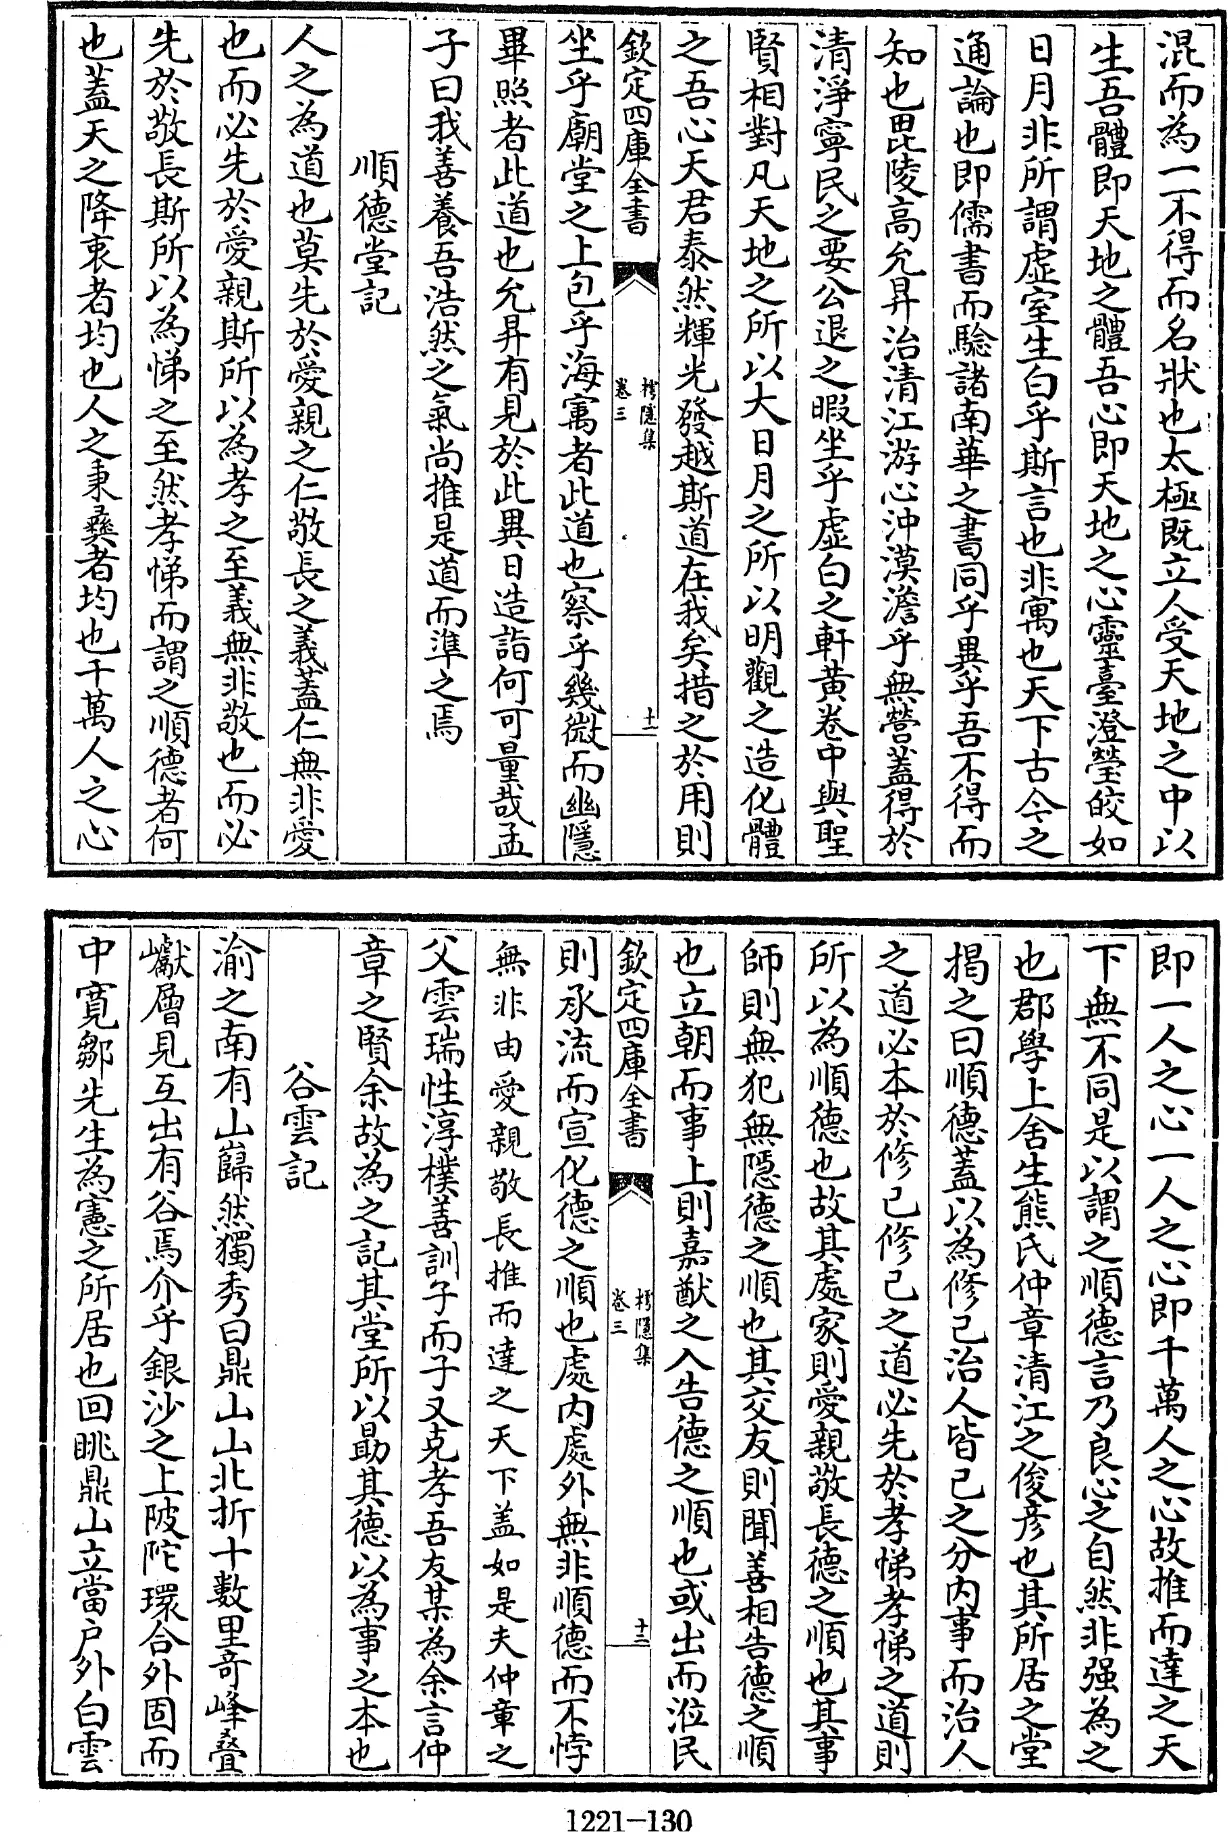 混而為一不得而名狀也太極既立人受天地之中以
生吾體即天地之體吾心即天地之心靈臺澄瑩皎如
日月非所謂虚室生白乎斯言也非寓也天下古今之
通論也即儒書而驗諸南華之書同乎異乎吾不得而
知也毘陵高允昇治清江游心沖漠澹乎無營蓋得於
清淨寧民之要公退之暇坐乎虚白之軒黄卷中與聖
賢相對凡天地之所以大日月之所以明觀之造化體
之吾心天君泰然輝光發越斯道在我矣措之於用則
欽定四庫全書
樗隱集
卷三
十一
坐乎廟堂之上包乎海㝢者此道也察乎幾微而幽隱
畢照者此道也允昇有見於此異日造詣何可量哉孟
子曰我善養吾浩然之氣尚推是道而準之焉
順德堂記
人之為道也莫先於愛親之仁敬長之義蓋仁無非愛
也而必先於愛親斯所以為孝之至義無非敬也而必
先於敬長斯所以為悌之至然孝悌而謂之順德者何
也蓋天之降衷者均也人之秉彛者均也千萬人之心
即一人之心一人之心即千萬人之心故推而達之天
下無不同是以謂之順德言乃良心之自然非强為之
也郡學上舍生熊氏仲章清江之俊彦也其所居之堂
揭之曰順德蓋以為修己治人皆己之分内事而治人
之道必本於修己修己之道必先於孝悌孝悌之道則
所以為順德也故其處家則愛親敬長德之順也其事
師則無犯無隱德之順也其交友則聞善相告德之順
也立朝而事上則嘉猷之入告德之順也或出而涖民
欽定四庫全書
樗隱集
卷三
十二
則承流而宣化德之順也處内處外無非順德而不悖
無非由愛親敬長推而達之天下盖如是夫仲章之
父雲瑞性淳樸善訓子而子又克孝吾友某為余言仲
章之賢余故為之記其堂所以勗其德以為事之本也
谷雲記
渝之南有山巋然獨秀曰鼎山山北折十數里奇峰疊
巘層見互出有谷焉介乎銀沙之上陂陀環合外固而
中寛鄒先生為憲之所居也回眺鼎山立當户外白雲
1221-130